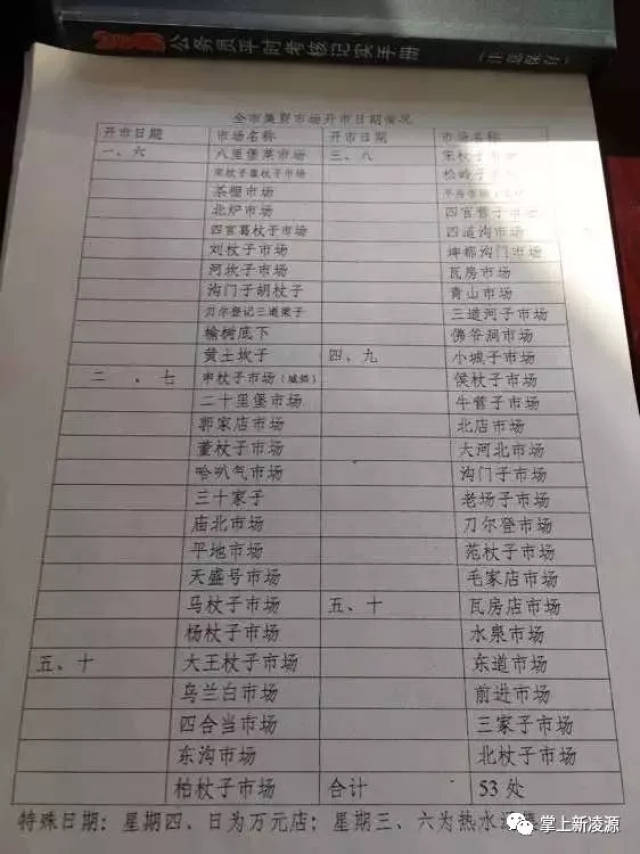 公务员平时考核记实手册
全市集贸市场开市日期情况
开市日期 市场名称 开市日期 市场名称
一、六 八里堡菜市场 三、八 宋杖子市场
松岭子市场
茶棚市场
北炉市场 四官营子市场
四官葛杖子市场 四道沟市场
刘杖子市场 沟门市场
河坎子市场 瓦房市场
沟门子胡杖子 青山市场
刀尔登记三道梁子 三道河子市场
榆树底下 佛爷洞市场
黄土坎子 四、九 小城子市场
二、七 市场 侯杖子市场
二十里堡市场 牛营子市场
郭家店市场 北店市场
董杖子市场 大河北市场
哈叭气市场 沟门子市场
三十家子 老场子市场
庙北市场 刀尔登市场
平地市场 苑杖子市场
天盛号市场 毛家店市场
马杖子市场 五、十 瓦房店市场
杨杖子市场 水泉市场
五、十 大王杖子市场 东道市场
乌兰白市场 前进市场
四合当市场 三家子市场
东沟市场 北杖子市场
柏杖子市场 合计 53处
特殊日期：星期四、日为万元店；星期三、六为热水
掌上新凌源